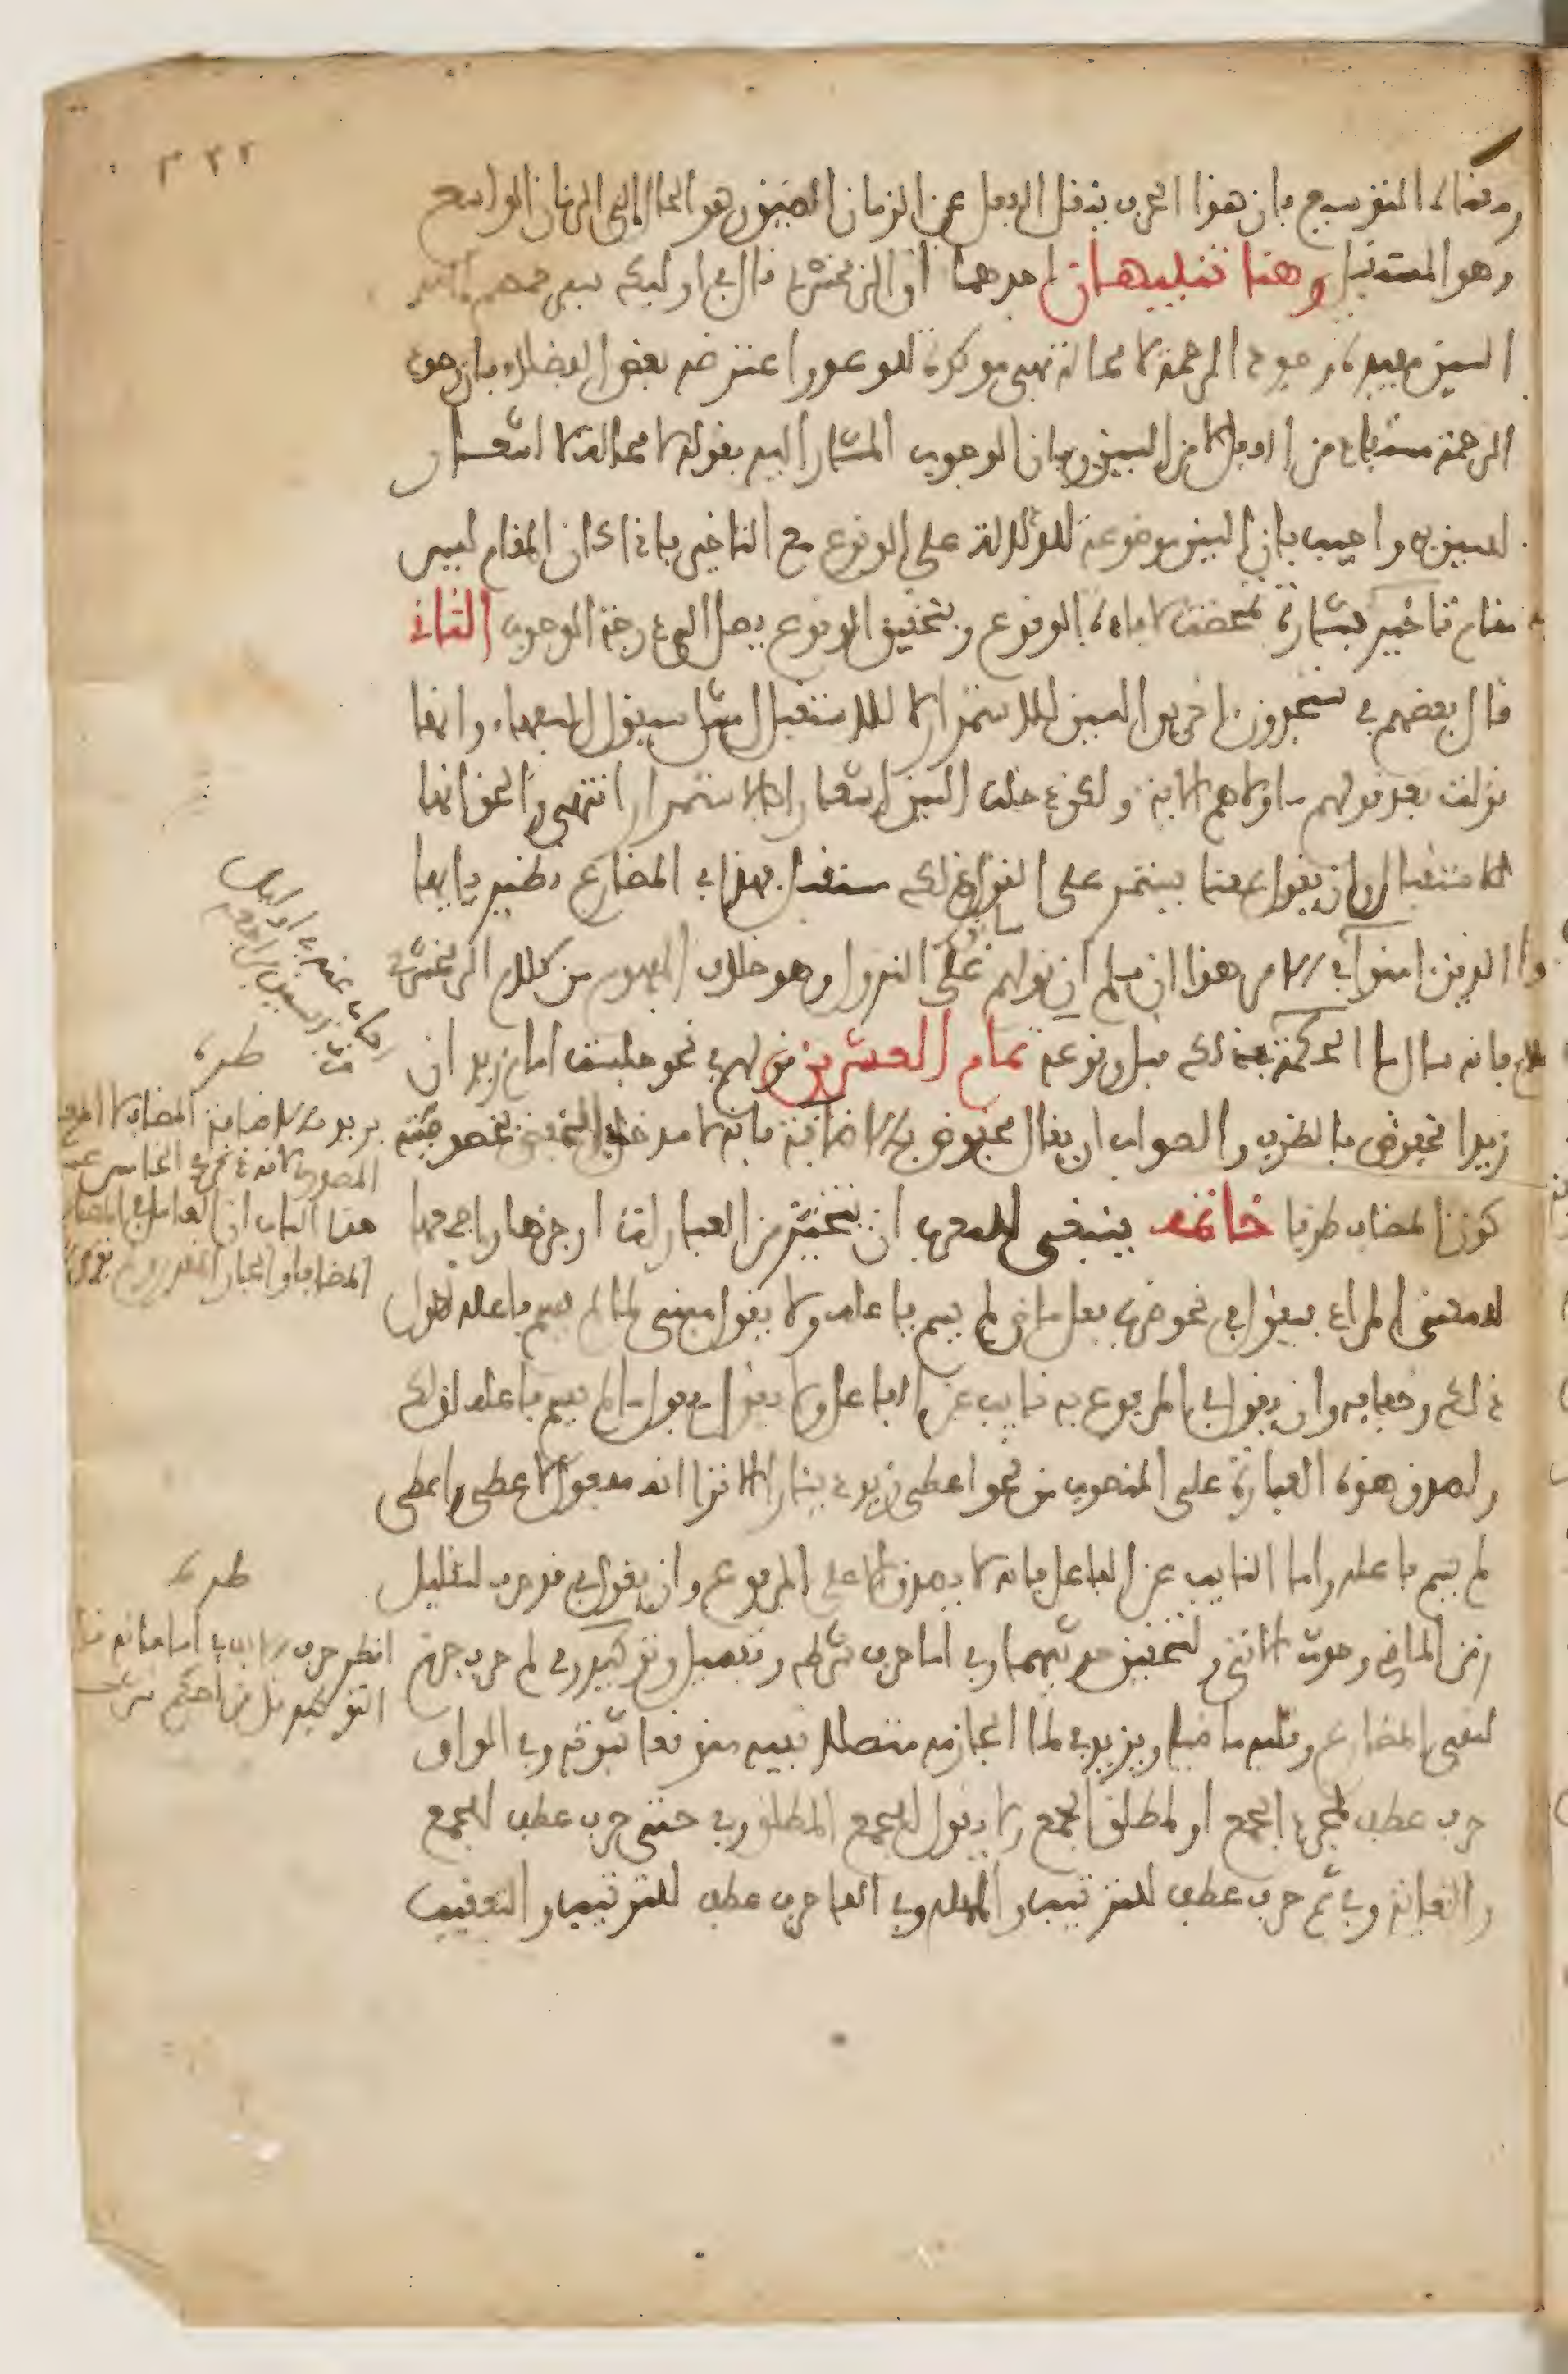 ٣٢٢
ومعناه التنفيس فإن هذا الحرف ينقل الفعل عن الزمان الضيق وهو الحال إلى الزمان الواسع
وهو المستقبل وهنا تنبيهان احدهما ان الزمخشري قال في اوليك سيرحمهم الله
السين مفيدة وجود الرحمة لا محالة فهي موكدة للوعد واعترضه بعض الفضلاء بان وجود
الرحمة مستفاد من الفعل لا من السين وبان الوجوب المشار إليه بقوله لا محالة لا اشعار
للسين به واجيب بان السين موضوعة للدلالة على الوقوع مع التاخير فاذا كان المقام ليس
مقام تاخير بشارة تمحضت لافادة الوقوع وبتحقيق الوقوع يصل الى درجة الوجوب الثاني
قال بعضهم في ستجدون اخرين السين للاستمرار لا للاستقبال مثل سيقول السفهاء وانها
نزلت بعد قولهم ما ولاهم الاية ولكن دخلت السين اشعارا بالاستمرار انتهى والحق انها
للاستقبال وان يقول بمعنى يستمر على القول وذلك مستقبل فهذا في المضارع نظير يا ايها
الذين امنوا في الامر هذا ان سلم ان قولهم سابق على النزول وهو خلاف المفهوم من كلام الزمخشري
فانه سال ما الحكمة في ذلك قبل وقوعه تمام العشرين قولهم في نحو جلست امام زيد ان
زيدا مخفوض بالظرف والصواب ان يقال مخفوض بالاضافة فانه لا مدخل في الخفض لخصوصية
كون المضاف ظرفا خاتمة ينبغي للمعرب ان يتخير من العبارات اوجزها واجمعها
للمعنى المراد فيقول في نحو ضرب فعل ماض لم يسم فاعله ولا يقول مبني لما لم يسم فاعله لطول
ذلك وخفايه وان يقول في المرفوع به نايب عن الفاعل ولا يقول مفعول ما لم يسم فاعله لذلك
ولصدق هذه العبارة على المنصوب من نحو اعطي زيد دينارا الا ترى انه مفعول لاعطي واعطي
لم يسم فاعله واما النايب عن الفاعل فانه لا يصدق الا على المرفوع وان يقول في قد حرف لتقليل
زمن الماضي وحدث الاتي ولتحقيق حدثيهما وفي اما حرف شرط وتفصيل وتوكيد وفي لم حرف جزم
لنفي المضارع وقلبه ماضيا ويزيد في لما الجازمة متصلا نفيه متوقعا ثبوته وفي الواو
حرف عطف لمجرد الجمع او لمطلق الجمع ولا يقول للجمع المطلق وفي حتى حرف عطف للجمع
والغاية وفي ثم حرف عطف للترتيب والمهلة وفي الفا حرف عطف للترتيب والتعقيب
طرة
يريد بالاضافة المضاف
طرة
انظر